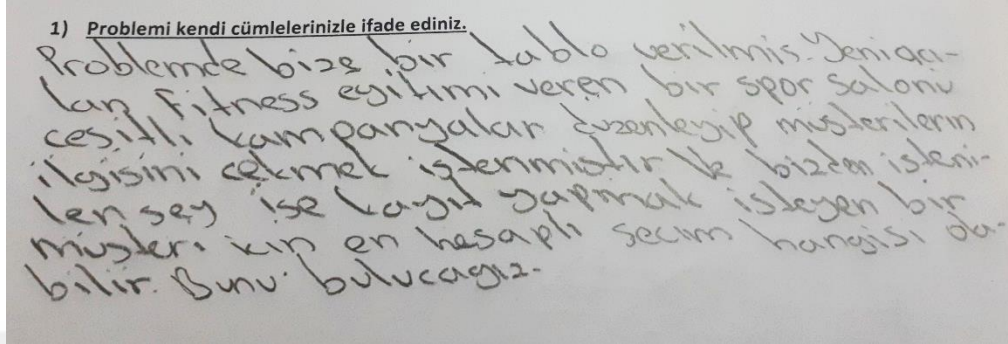 1) Problemi kendi cümlelerinizle ifade ediniz.
Problemde bize bir tablo verilmiş. Yeni açı-
lan fitness eğitimi veren bir spor salonu
çeşitli kampanyalar düzenleyip müşterilerin
ilgisini çekmek istenmiştir. Ve bizden isteni-
len şey ise kayıt yapmak isteyen bir
müşteri için en hesaplı seçim hangisi ola-
bilir. Bunu bulucağız.